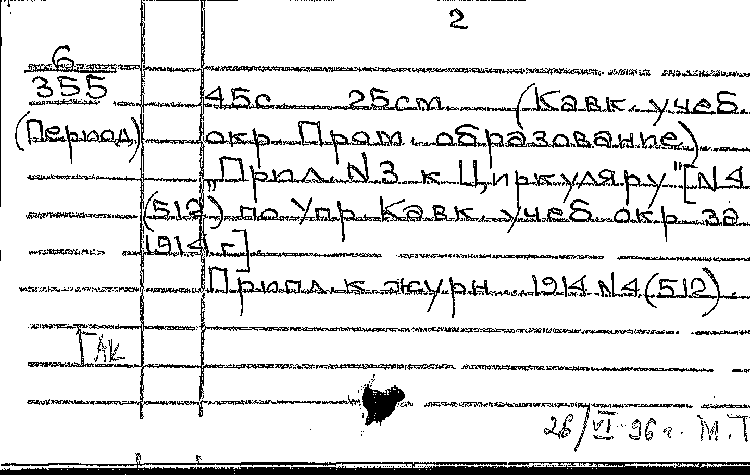 2
6
355
45с 25см (Кавк. учеб.
(Период) окр. Пром. образование)
"Прил. N3 к Циркуляру" [N4
(512) по Упр Кавк. учеб. окр за
1914 г].
Прил. к журн. 1914 N4 (512).
ГАК
26/VI-96 г. М.Т